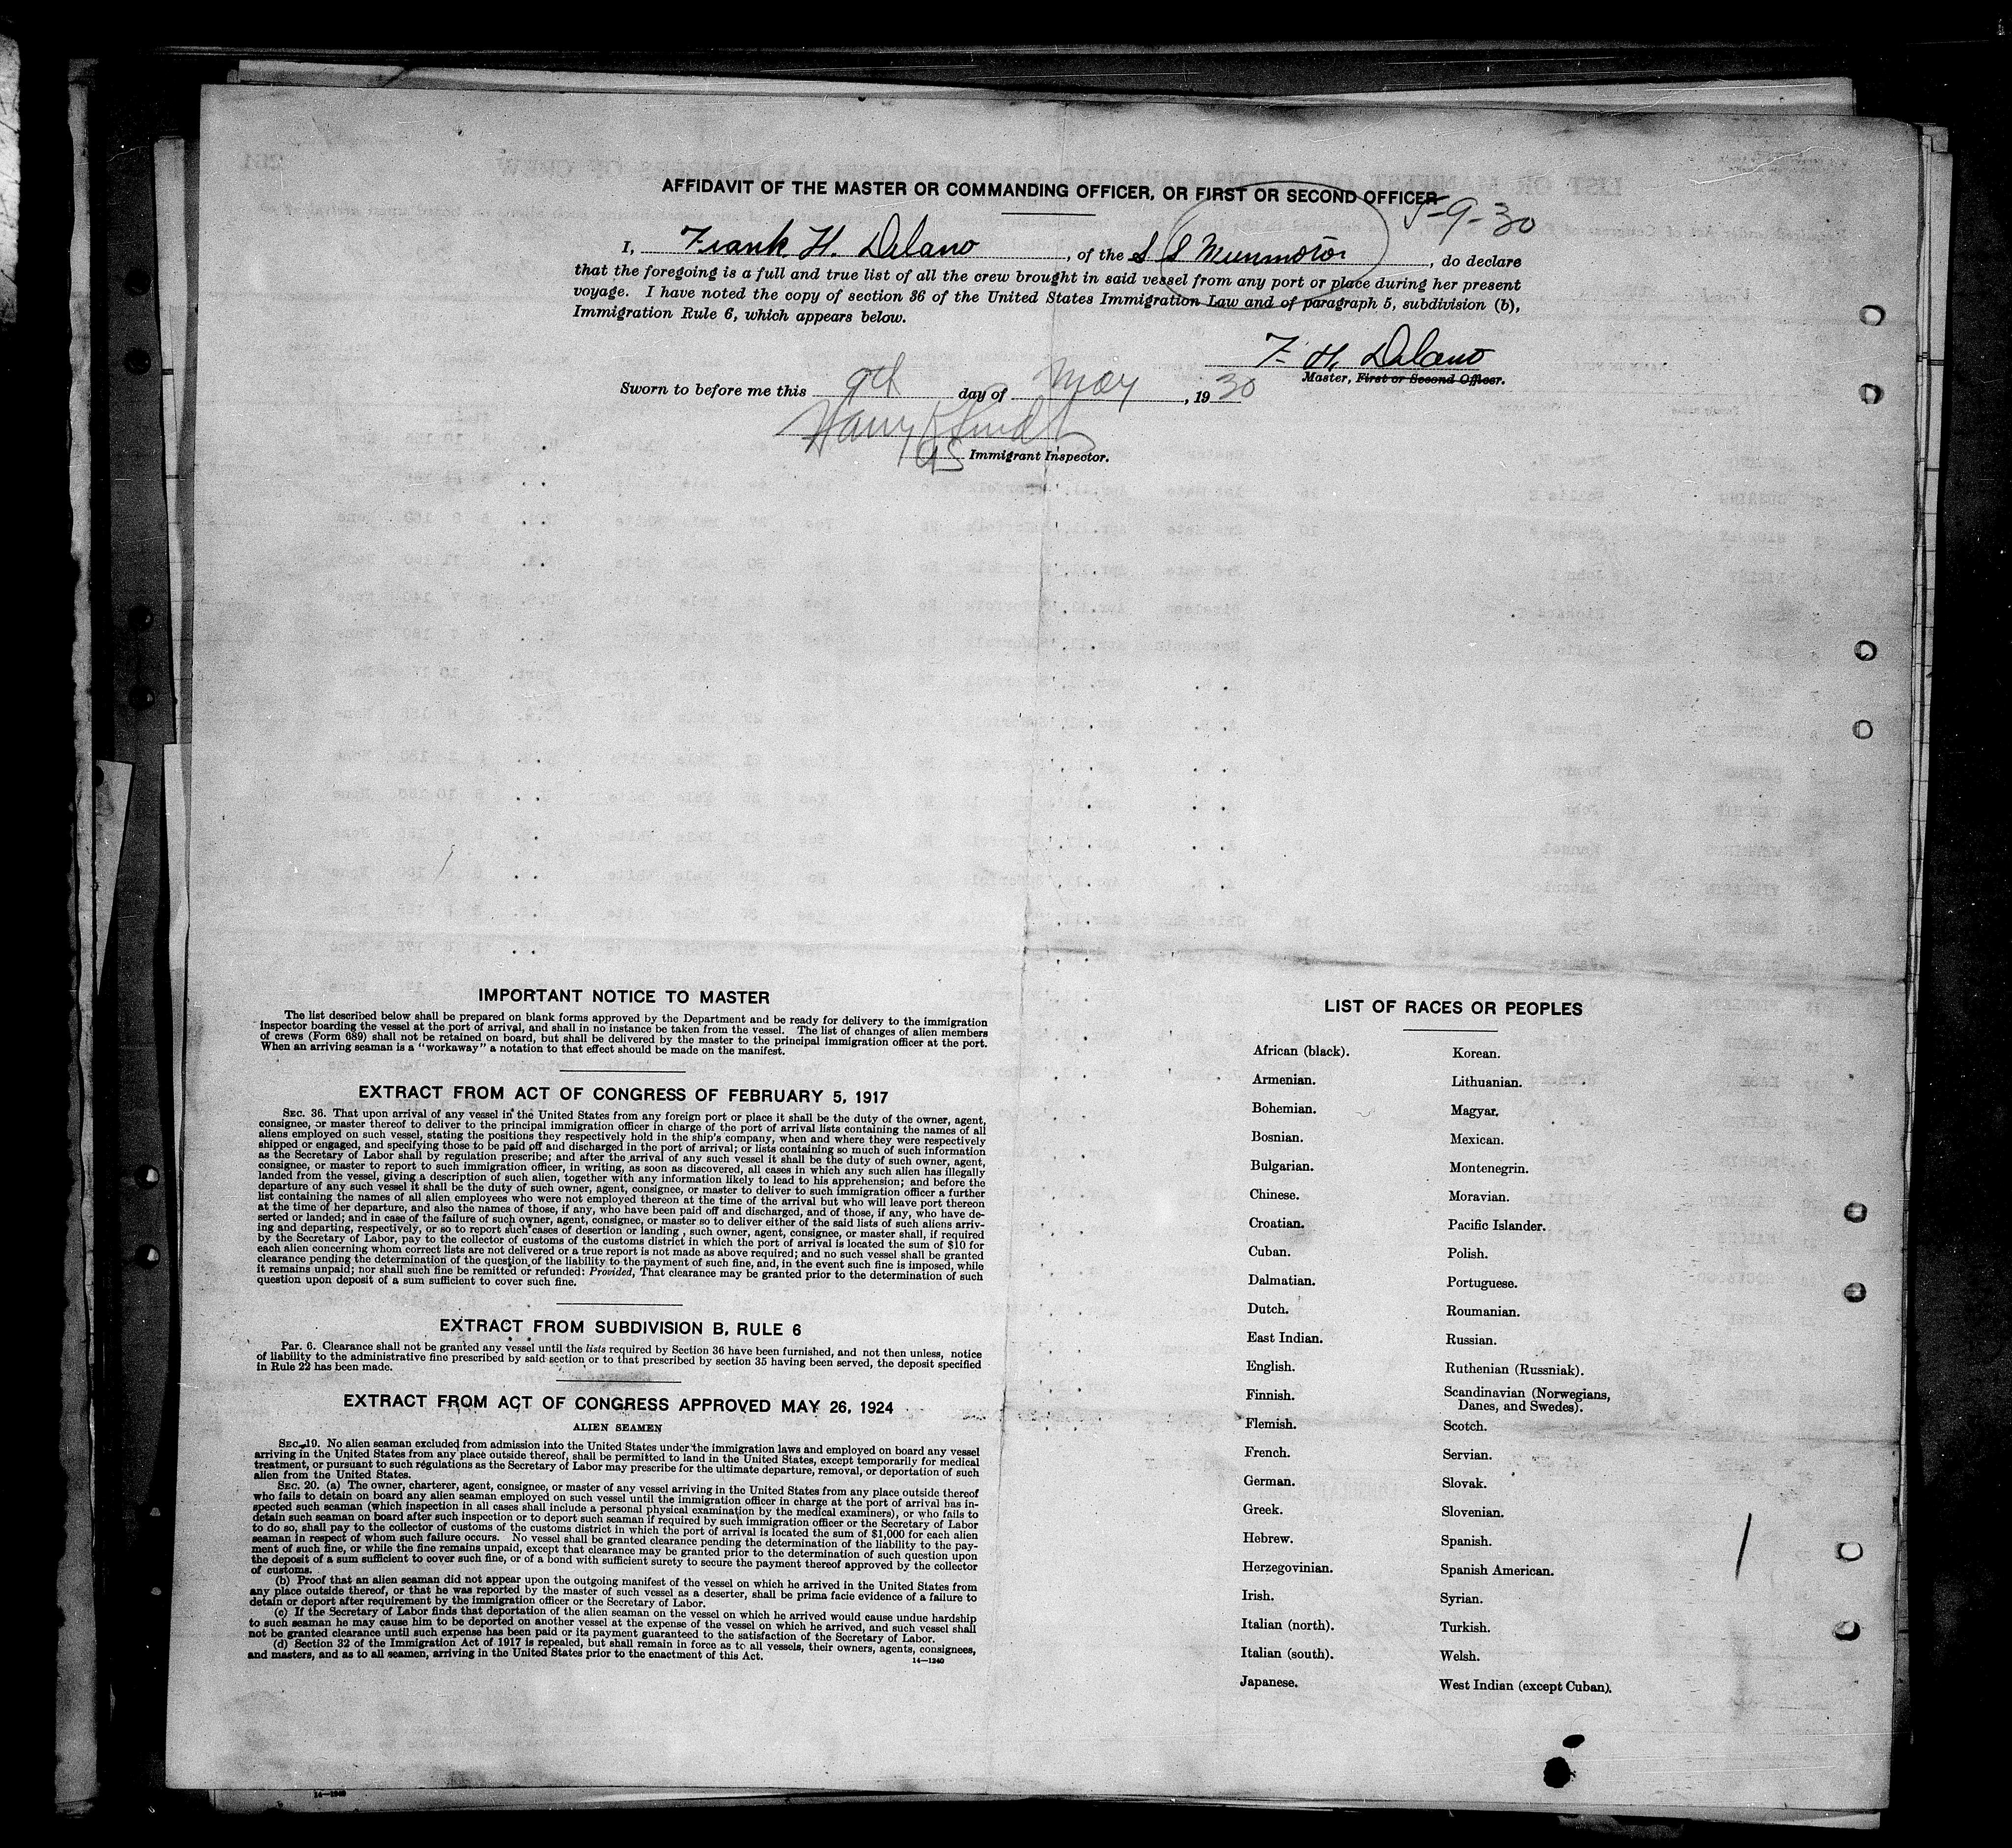 AFFIDAVIT OF THE MASTER OR COMMANDING OFFICER, OR FIRST OR SECOND OFFICER
5-9-30
I, Frank H. Delano, of the S S Munmotor, do declare
that the foregoing is a full and true list of all the crew brought in said vessel from any port or place during her present
voyage. I have noted the copy of section 36 of the United States Immigration Law and of paragraph 5, subdivision (b),
Immigration Rule 6, which appears below.
F. H. Delano
Master, First or Second Officer.
Sworn to before me this 9th day of May, 1930
Harry
Immigrant Inspector.
IMPORTANT NOTICE TO MASTER
The list described below shall be prepared on blank forms approved by the Department and be ready for delivery to the immigration
inspector boarding the vessel at the port of arrival, and shall in no instance be taken from the vessel. The list of changes of alien members
of crews (Form 689) shall not be retained on board, but shall be delivered by the master to the principal immigration officer at the port.
When an arriving seaman is a "workaway" a notation to that effect should be made on the manifest.
EXTRACT FROM ACT OF CONGRESS OF FEBRUARY 5, 1917
SEC. 36. That upon arrival of any vessel in the United States from any foreign port or place it shall be the duty of the owner, agent,
consignee, or master thereof to deliver to the principal immigration officer in charge of the port of arrival lists containing the names of all
aliens employed on such vessel, stating the positions they respectively hold in the ship's company, when and where they were respectively
shipped or engaged, and specifying those to be paid off and discharged in the port of arrival; or lists containing so much of such information
as the Secretary of Labor shall by regulation prescribe; and after the arrival of any such vessel it shall be the duty of such owner, agent,
consignee, or master to report to such immigration officer, in writing, as soon as discovered, all cases in which any such alien has illegally
landed from the vessel, giving a description of such alien, together with any information likely to lead to his apprehension; and before the
departure of any such vessel it shall be the duty of such owner, agent, consignee, or master to deliver to such immigration officer a further
list containing the names of all alien employees who were not employed thereon at the time of the arrival but who will leave port thereon
at the time of her departure, and also the names of those, if any, who have been paid off and discharged, and of those, if any, who have de-
serted or landed; and in case of the failure of such owner, agent, consignee, or master so to deliver either of the said lists of such aliens arriv-
ing and departing, respectively, or so to report such cases of desertion or landing, such owner, agent, consignee, or master shall, if required
by the Secretary of Labor, pay to the collector of customs of the customs district in which the port of arrival is located the sum of $10 for
each alien concerning whom correct lists are not delivered or a true report is not made as above required; and no such vessel shall be granted
clearance pending the determination of the question of the liability to the payment of such fine, and, in the event such fine is imposed, while
it remains unpaid; nor shall such fine be remitted or refunded: Provided, That clearance may be granted prior to the determination of such
question upon deposit of a sum sufficient to cover such fine.
EXTRACT FROM SUBDIVISION B, RULE 6
Par. 6. Clearance shall not be granted any vessel until the lists required by Section 36 have been furnished, and not then unless, notice
of liability to the administrative fine prescribed by said section or to that prescribed by section 35 having been served, the deposit specified
in Rule 22 has been made.
EXTRACT FROM ACT OF CONGRESS APPROVED MAY 26, 1924
ALIEN SEAMEN
SEC. 19. No alien seaman excluded from admission into the United States under the immigration laws and employed on board any vessel
arriving in the United States from any place outside thereof, shall be permitted to land in the United States, except temporarily for medical
treatment, or pursuant to such regulations as the Secretary of Labor may prescribe for the ultimate departure, removal, or deportation of such
alien from the United States.
SEC. 20. (a) The owner, charterer, agent, consignee, or master of any vessel arriving in the United States from any place outside thereof
who fails to detain on board any alien seaman employed on such vessel until the immigration officer in charge at the port of arrival has in-
spected such seaman (which inspection in all cases shall include a personal physical examination by the medical examiners), or who fails to
detain such seaman on board after such inspection or to deport such seaman if required by such immigration officer or the Secretary of Labor
to do so, shall pay to the collector of customs of the customs district in which the port of arrival is located the sum of $1,000 for each alien
seaman in respect of whom such failure occurs. No vessel shall be granted clearance pending the determination of the liability to the pay-
ment of such fine, or while the fine remains unpaid, except that clearance may be granted prior to the determination of such question upon
the deposit of a sum sufficient to cover such fine, or of a bond with sufficient surety to secure the payment thereof approved by the collector
of customs.
(b) Proof that an alien seaman did not appear upon the outgoing manifest of the vessel on which he arrived in the United States from
any place outside thereof, or that he was reported by the master of such vessel as a deserter, shall be prima facie evidence of a failure to
detain or deport after requirement by the immigration officer or the Secretary of Labor.
(c) If the Secretary of Labor finds that deportation of the alien seaman on the vessel on which he arrived would cause undue hardship
to such seaman he may cause him to be deported on another vessel at the expense of the vessel on which he arrived, and such vessel shall
not be granted clearance until such expense has been paid or its payment guaranteed to the satisfaction of the Secretary of Labor.
(d) Section 32 of the Immigration Act of 1917 is repealed, but shall remain in force as to all vessels, their owners, agents, consignees,
and masters, and as to all seamen, arriving in the United States prior to the enactment of this Act.
14—1240
LIST OF RACES OR PEOPLES
African (black).
Armenian.
Bohemian.
Bosnian.
Bulgarian.
Chinese.
Croatian.
Cuban.
Dalmatian.
Dutch.
East Indian.
English.
Finnish.
Flemish.
French.
German.
Greek.
Hebrew.
Herzegovinian.
Irish.
Italian (north).
Italian (south).
Japanese.
Korean.
Lithuanian.
Magyar.
Mexican.
Montenegrin.
Moravian.
Pacific Islander.
Polish.
Portuguese.
Roumanian.
Russian.
Ruthenian (Russniak).
Scandinavian (Norwegians,
Danes, and Swedes).
Scotch.
Servian.
Slovak.
Slovenian.
Spanish.
Spanish American.
Syrian.
Turkish.
Welsh.
West Indian (except Cuban).
14—1240